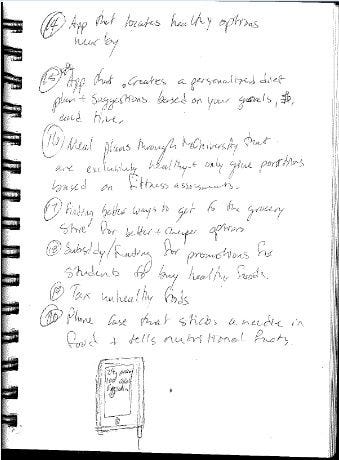 (14) App that locates healthy options
nearby
(15) App that creates a personalized diet
plan + suggestions based on your goals, $,
and time.
(16) Meal plans through University that
are exclusively healthy + only give portions
based on fitness assessments.
(17) Finding better ways to get to the grocery
store for better + cheaper options
(18) Subsidy/Funding for promotions for
students to buy healthy foods.
(19) Tax unhealthy foods
(20) Phone case that sticks a needle in
food + tells nutritional facts.